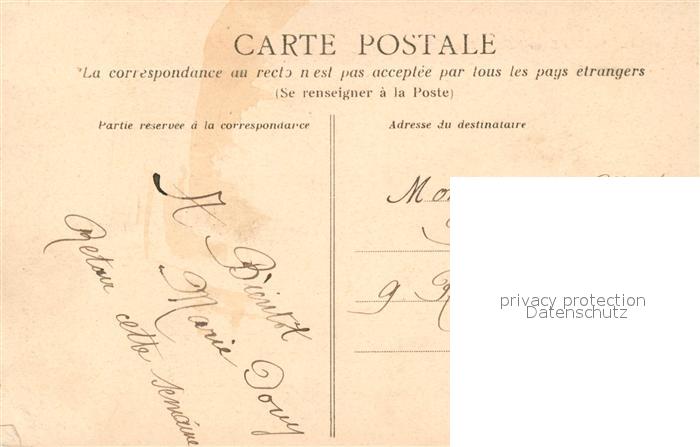 CARTE POSTALE
La correspondance au recto n'est pas acceptée par tous les pays étrangers
(Se renseigner à la Poste)
Partie réservée à la correspondance
Adresse du destinataire
A Bientot
Marie
Retour cette semaine
Mon
9 R
privacy protection
Datenschutz